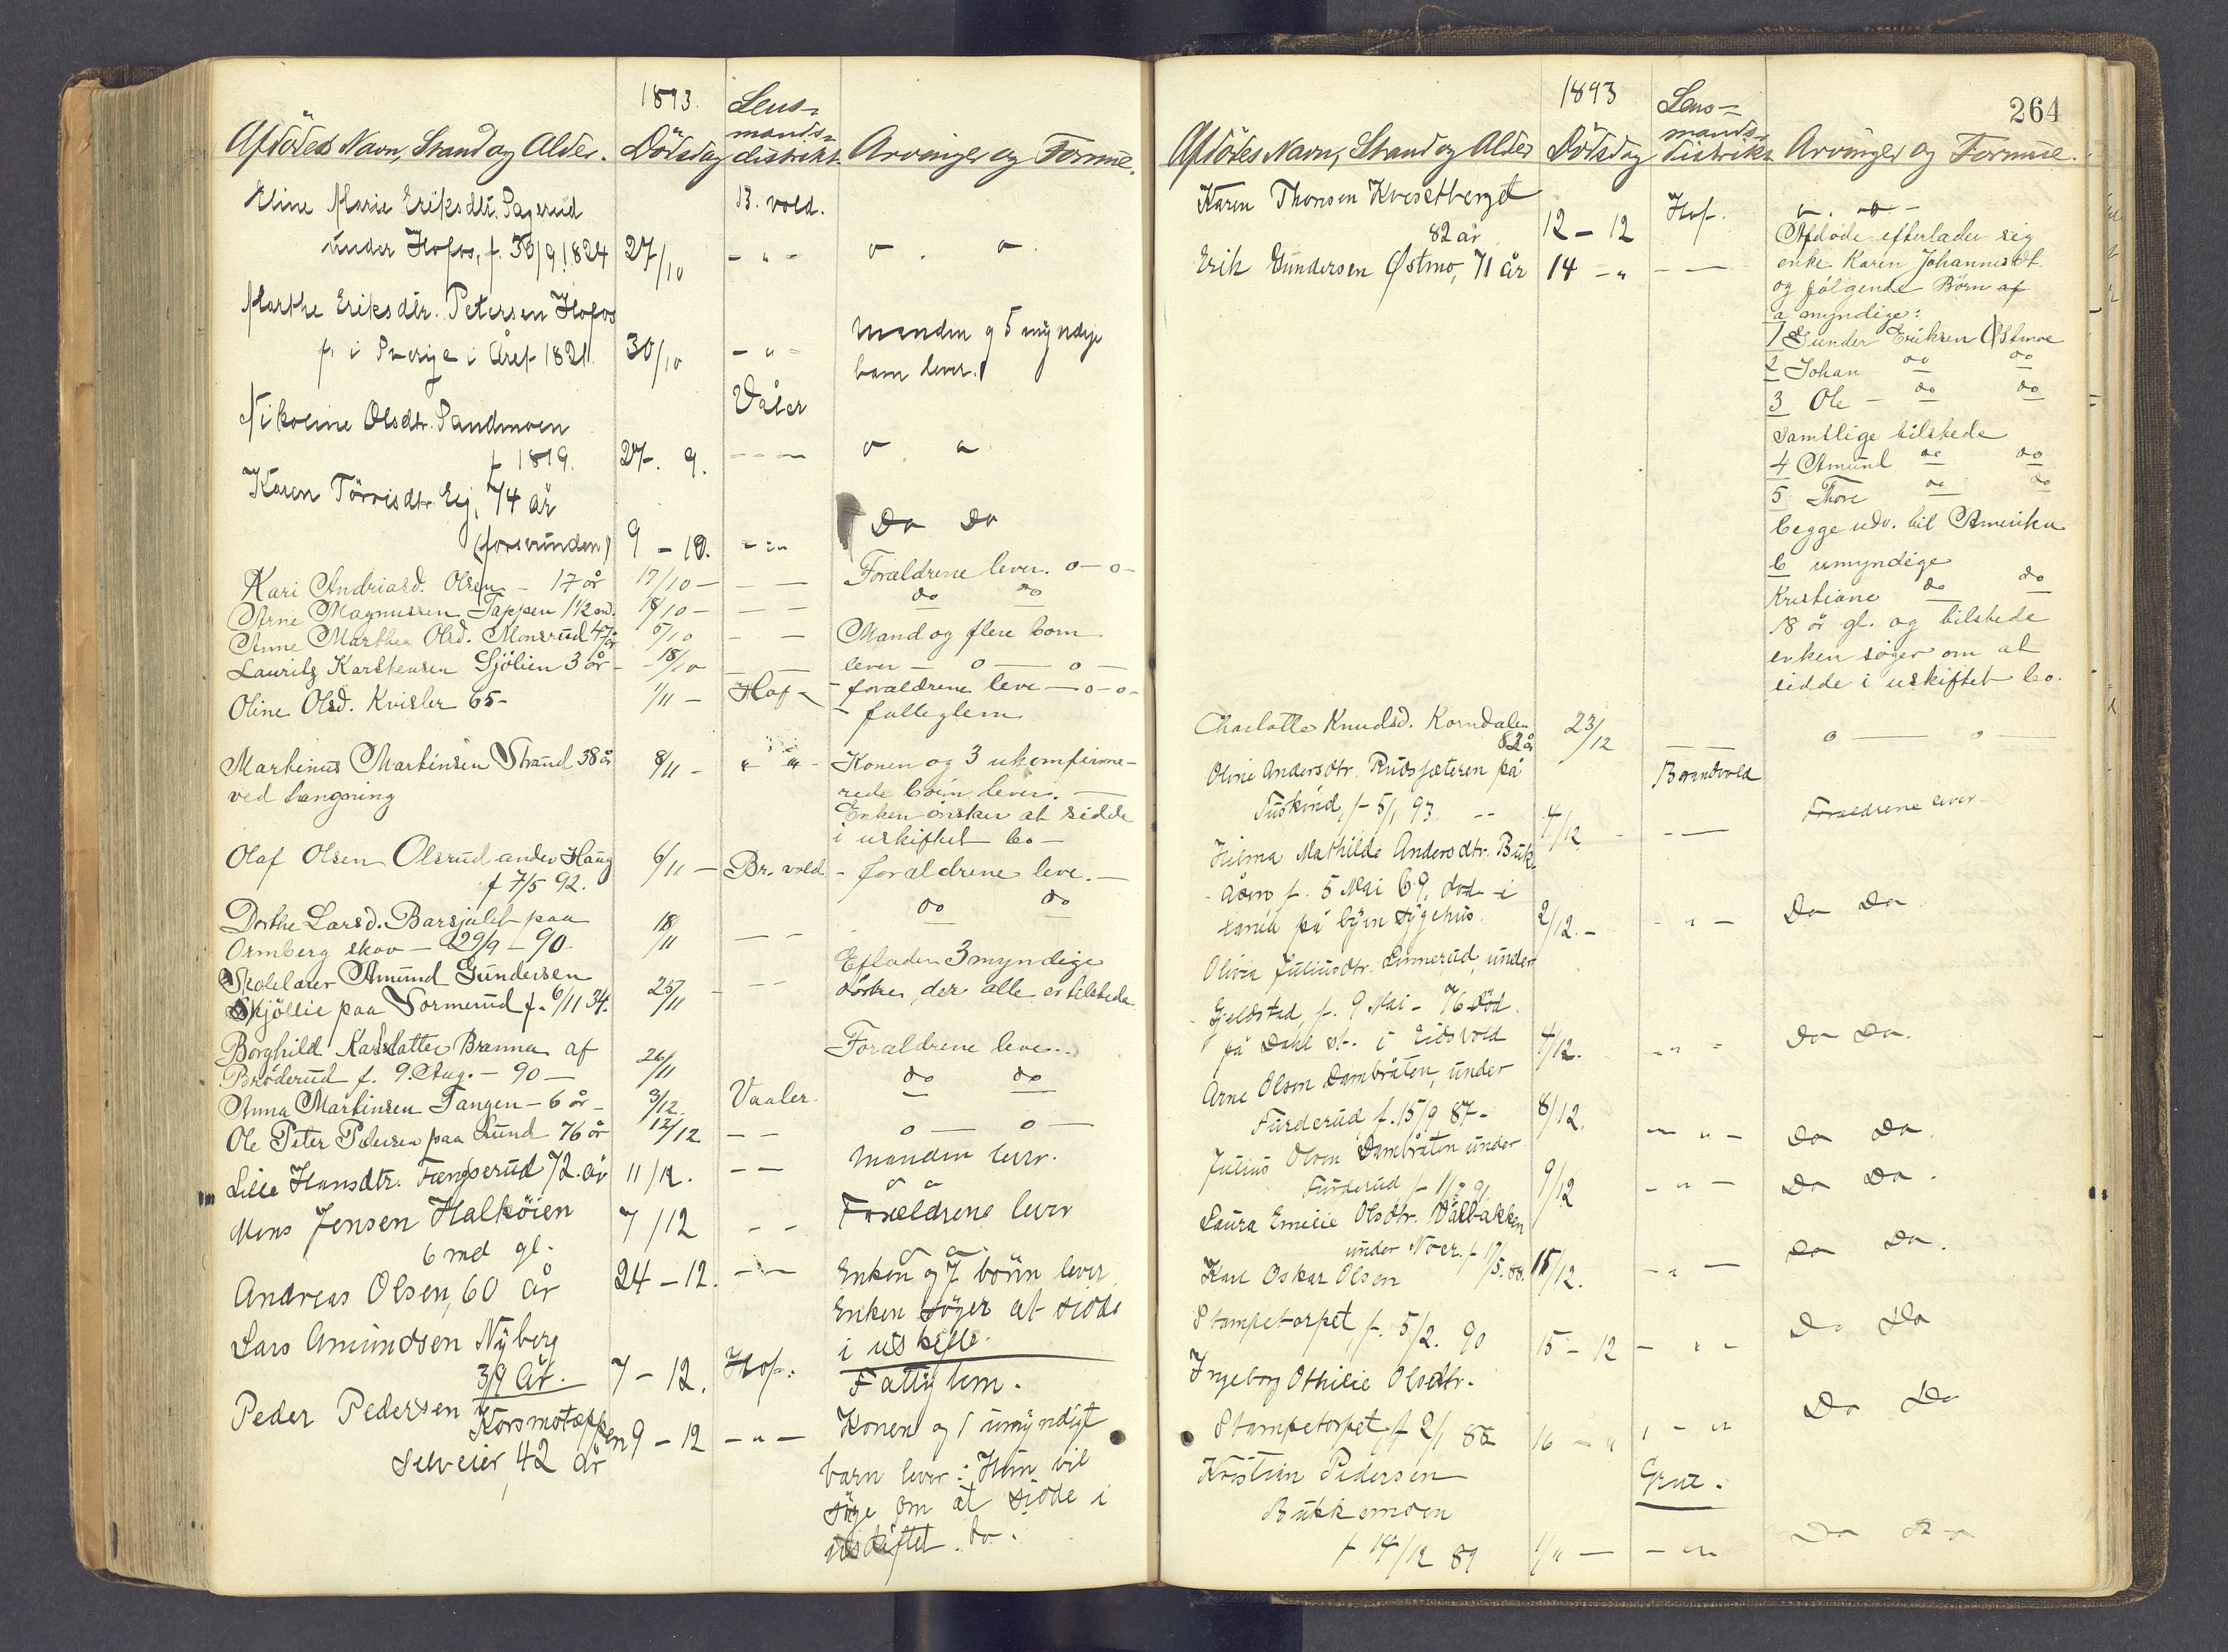 1893.
Lens-
mands-
Afdödes Navn, Stand og Alder. Dödsdag distrikt Arvinger og Formue.
Eline Marie Eriksdtr. Sagerud B. vold.
under Hofos, f. 30/9 1824 27/10 - " - o . o .
Marthe Eriksdtr. Petersen Hofos
f. i Sverige i Året 1821. 30/10 - " - Manden og 5 myndige
barn lever.
Våler
Nikoline Olsdtr. Sandmoen
f 1819. 27. 9. - - - o . o
Karen Törrisdtr. Eij, 74 år
(forsvunden) 9 - 10. - " - Do Do
Kari Andriasd. Olsen - 17 år 17/10 - - - Forældrene lever. o - o -
Arne Magnussen Tappen 1 1/2 md. 18/10 - - - do do
Anne Marthea Olsd. Monsrud 47 år 5/10 - - Mand og flere born
Lauritz Karstensen Sjölien 3 år - 18/10 - - lever - o - o -
Oline Olsd. Kvisler 65 - 1/11 - Hof - - forældrene leve - o - o -
- fatteglem
Martinus Martinsen Strand 38 år 8/11 - " " - Konen og 3 ukomfirme-
ved hængning rede börn lever. -
Enken önsker at sidde
i uskiftet bo -
Olaf Olsen Olsrud under Haug 6/11 - Br. vold - forældrene leve. -
f 7/5 92.
Dorthe Larsd. Barsjølet paa 18/11 - - do do
Ormberg skov - 29/9 - 90 -
Skolelærer Amund Gundersen 25/11 - - - Eflader 3 myndige
Skjöllie paa Sormerud f. 6/11 34. döttre, der alle er tilstede
Borghild Karlsdatter Branna af 26/11 Forældrene leve..
Bröderud f. 9. Aug. - 90 - do do
Anna Martinsen Tangen - 6 år - 3/12. Vaaler.
Ole Peter Pedersen paa Lund 76 år 12/12 - - o - o -
Lisie Hansdtr. Fængserud 72. år 11/12. - - Manden lever.
o o
Mons Jensen Halköien 7/12 - - Forældrene lever
6 md gl. o o .
Andreas Olsen, 60 år 24 - 12. - - Enken og 7 börn lever
Enken söger at sidde
Lars Amundsen Nyberg i uskifte.
39 År. 7 - 12. Hof. Fattiglem.
Peder Pedersen Korsmotæppen 9 - 12 - " - Konen og 1 umyndigt
selveier, 42 år barn lever: Hun vil
söge om at sidde i
uskiftet bo.
1893
264
Lens-
mands-
Afdödes Navn, Stand og Alder Dödsdag distrikt Arvinger og Formue.
Karen Thonsen Kvesetberget Hof. o. o -
82 år 12 - 12 Afdöde efterlader sig
Erik Gundersen Østmo, 71 år 14 - " - - enke Karen Johannesdt.
og følgende Börn af
a myndige:
1 Gunder Eriksen Østmoe
2 Johan do do
3 Ole - do do
samtlige tilstede
4 Amund do do
5 Thore do do
begge udv. til Amerika
b umyndige
Kristiane do do
18 år gl. og tilstede
enken söger om at
sidde i uskiftet bo.
Charlotte Knudsd. Korndalen 23/12
82 år - - o - o -
Oline Andersdtr. Rudssæteren på Brandvold
Tuskind, f. 5/1 93. -- 4/12 - - - Forældrene lever -
Hilma Mathilde Andersdtr. Buk-
åsen f. 5 Mai 69. död i
Xania på byen sygehus. 2/12. - - " - Do Do
Olivia Juliusdtr. Linnerud, under
Gjeldstad, f. 9 Mai - 76 död
på Dahl st. i Eidsvold 4/12. - " - Do Do.
Arne Olsen Dambråten, under
Furderud f. 15/9 87 - 8/12. - " - Do Do
Julius Olsen Dambråten under
Furderud f 1/7 91 9/12 - " - Do Do .
Laura Emilie Olsdtr. Vålbakken
under Noer. f 17/5. 88. 15/12. - " - Do Do.
Karl Oskar Olsen
Stampetorpet, f. 5/2. 90 15 - 12 - " - Do Do
Ingeborg Othilie Olsdtr.
Stampetorpet f 2/1 88 16 - " " - " Do Do
Kristian Pedersen Grue.
Bukkemoen
f. 14/12 89 1/11 - - " Do Do